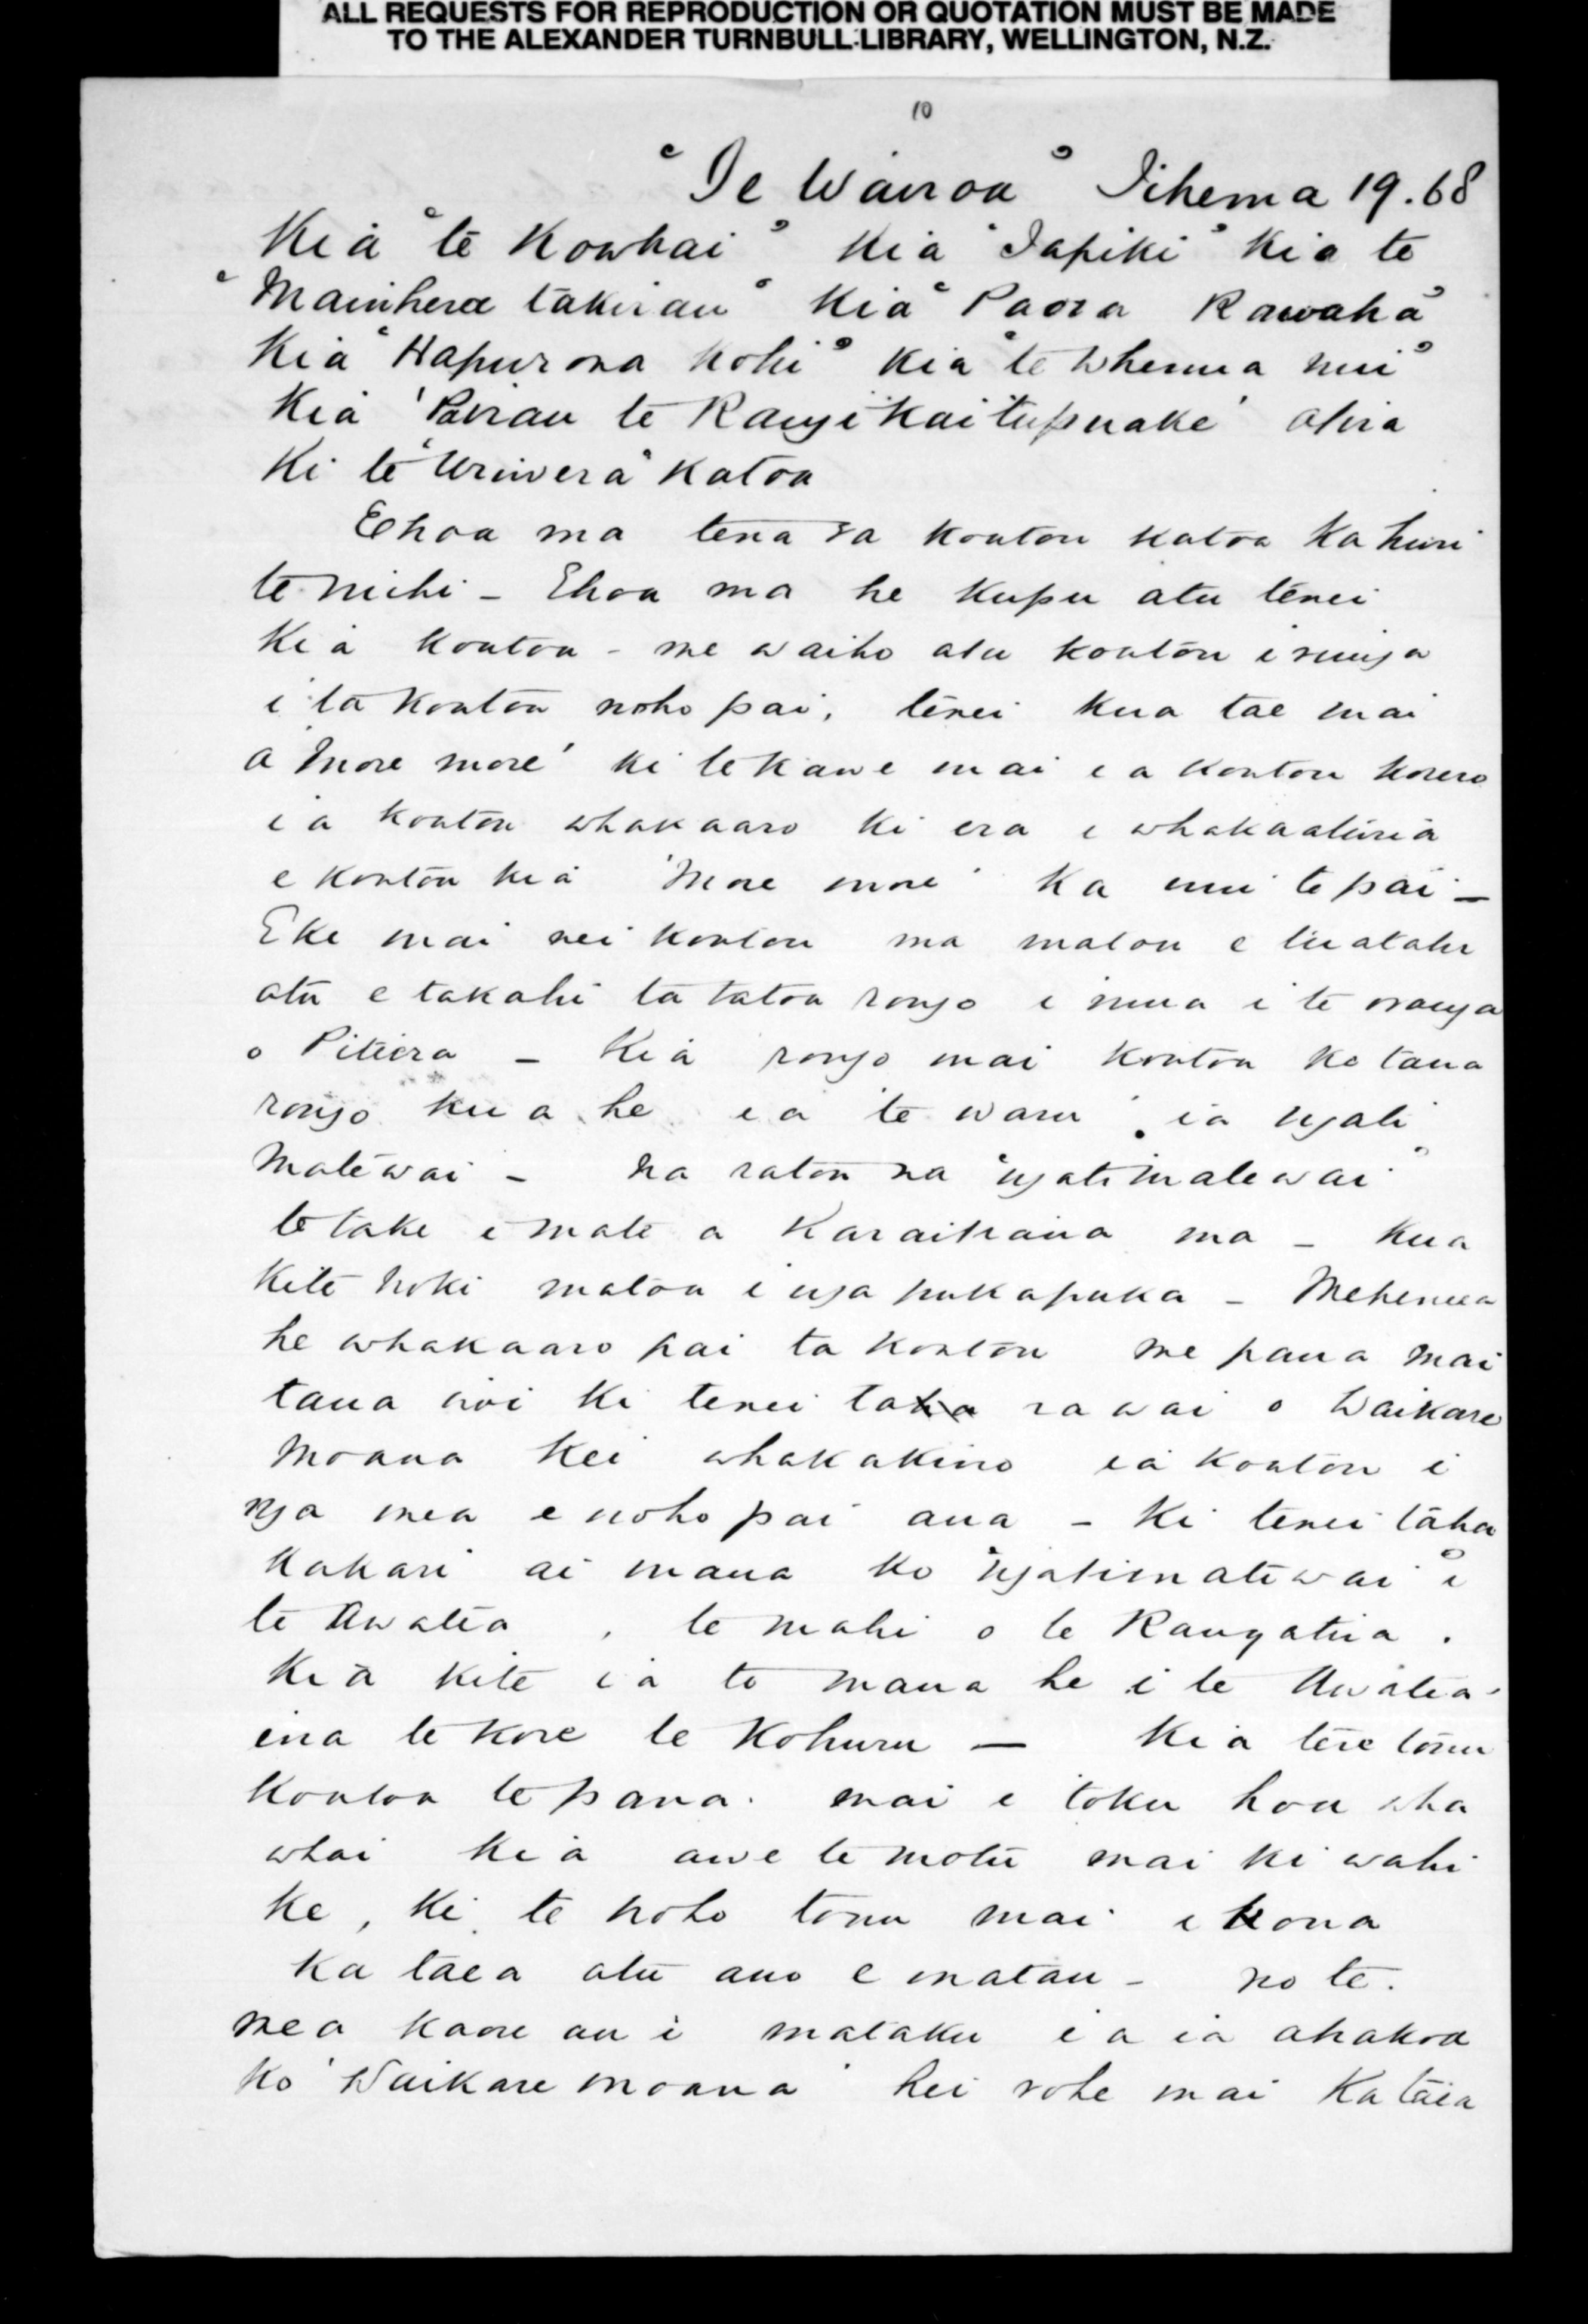 ALL REQUESTS FOR REPRODUCTION OR QUOTATION MUST BE MADE
TO THE ALEXANDER TURNBULL LIBRARY, WELLINGTON, N.Z.
10
"Te Wairoa" Tihema 19.68
Kia "te Kowhai" Kia "Tapiki" Kia te
"Mainhera takirau" Kia "Paora Rawaha"
Kia "Hapurona Kohi" Kia "te Whenua nui"
Kia 'Paerau te Rangi Kaitupuake' otira
Ki te "Uriwera" Katoa
Ehoa ma tena ra koutou katoa ka huri
te nichi - Ehoa ma he kupu atu tenei
Kia koutou - me waiho atu koutou i runga
i ta koutou noho pai, tenei kua tae mai
a 'More more' ki te kawe mai i a koutou korero
i a koutou whakaaro ki era i whakaaturia
e koutou kia 'More more' Ka nui te pai -
Eke mai nei koutou ma matou e tuatahi
atu e takahi ta tatou rongo i mua i te oranga
o Pitiera - Kia rongo mai koutou ko taua
rongo kua he i a 'te waru', ia ngati
Matewai - na ratou na "ngatimatewai"
te take i mate a Karaitiana ma - Kua
Kite hoki matou i nga pukapuka - Mehemea
he whakaaro pai ta koutou me pana mai
taua iwi ki tenei taha ra wai o Waikare
Moana Kei whakakino ia koutou i
nga mea e noho pai ana - Ki tenei taha
Kakari ai maua ko "ngatimatewai" i
te Awatea, te mahi o te Rangatira.
Kia kite ia to maua he i te Awatea
ina te kore te Kohuru - Kia tere tonu
Koutou te pana mai i toku hoa wha
whai kia awe te motu mai ki wahi
ke, Ki te noho tonu mai i kona
Ka taea atu ano e matau - no te
mea kaore au i mataku i a ia ahakoa
ko 'Waikare moana' hei rohe mai Ka taea